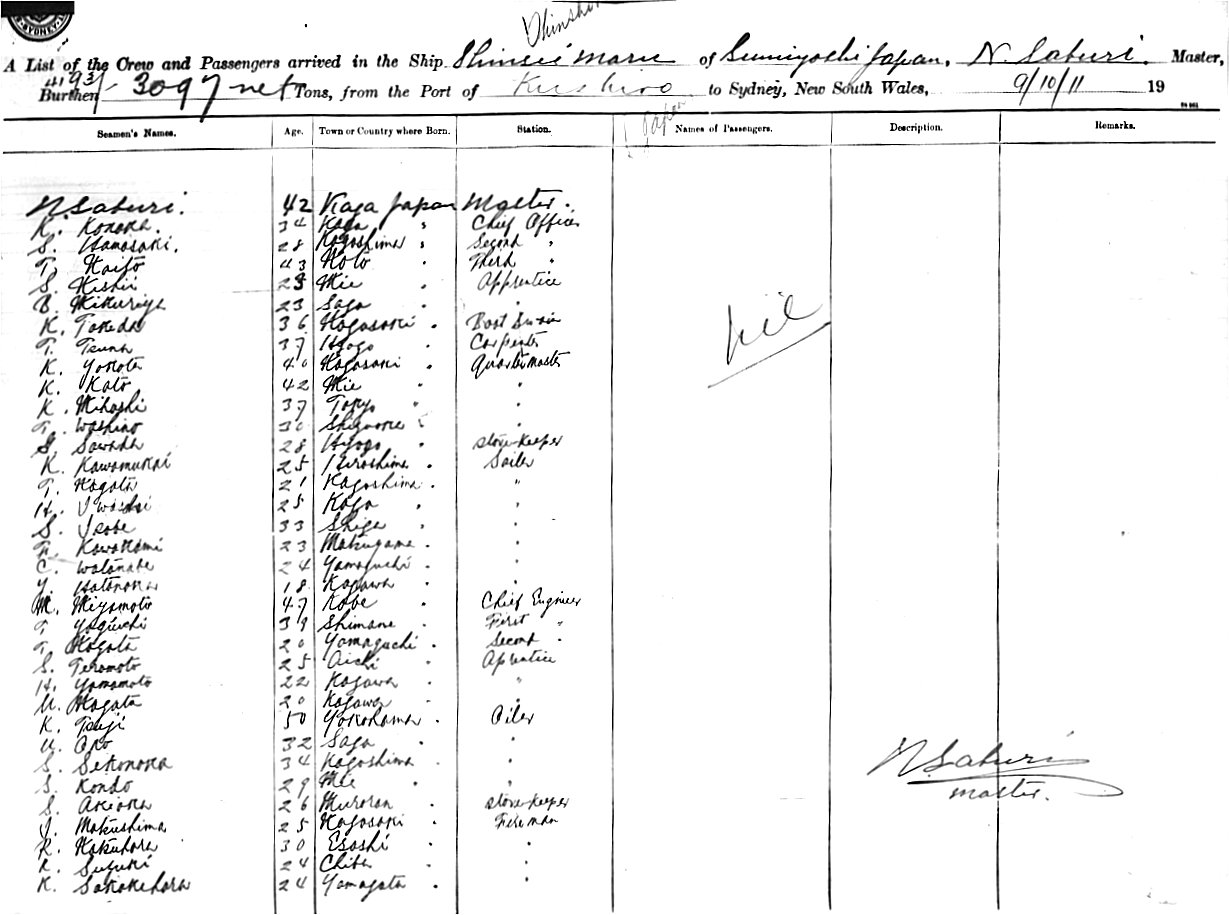 SYDNEY
Shinsei
A List of the Crew and Passengers arrived in the Ship Shinsei Maru of Sumiyoshi Japan, N. Saburi. Master,
4193/
Burthen 3097 net Tons, from the Port of Kushiro to Sydney, New South Wales, 9/10/11 19
Japan
Seamen's Names. Age. Town or Country where Born. Station. Names of Passengers. Description. Remarks.
N Saburi. 42 Kaga Japan Master.
K. 34 Kaga " Chief Officer
S. Hamasaki. 28 Kagoshima " Second "
T. Kaito 43 Noto " Third "
S. Kishii Mie " Apprentice
B. Mikuriya 23 Saga " "
K. Takeda 36 Nagasaki " Boat Swain
T. 37 Hyogo " Carpenter
K. Yokota 40 Nagasaki " Quartermaster
K. Kato 42 Mie " "
K. Mihashi 37 Tokyo " "
T. Washino 30 Shizuoka " "
S. Sawada 28 Hyogo " Storekeeper
K. Kawamukai 25 Hiroshima " Sailer
T. Nagata 21 Kagoshima " "
H. 25 Kaga " "
S. Isobe 33 Shiga " "
Kawakami 23 " "
C. Watanabe 24 Yamaguchi " "
Y. Hatanaka 18 Kagawa " "
M. Miyamoto 47 Kobe " Chief Engineer
T Yaguchi 39 Shimane " First "
T. Nagata 20 Yamaguchi " Second "
S. Teramoto 25 Aichi " Aprentice
H. Yamamoto 22 Kagawa " "
U. Nagata 20 Kagawa " "
K. Tsuji 50 Yokohama " Oiler
U. 32 Saga " "
S. Sekonoka 34 Kagoshima " "
S. Kondo 29 Mie " "
S. Akioka 26 Muroran " Storekeeper
Makushima 25 Nagasaki " Fireman
R. Kakuhara 30 Esashi " "
R. Suzuki 24 Chiba " "
K. Sakakihara 24 Yamagata " "
Nil
N Saburi
master.